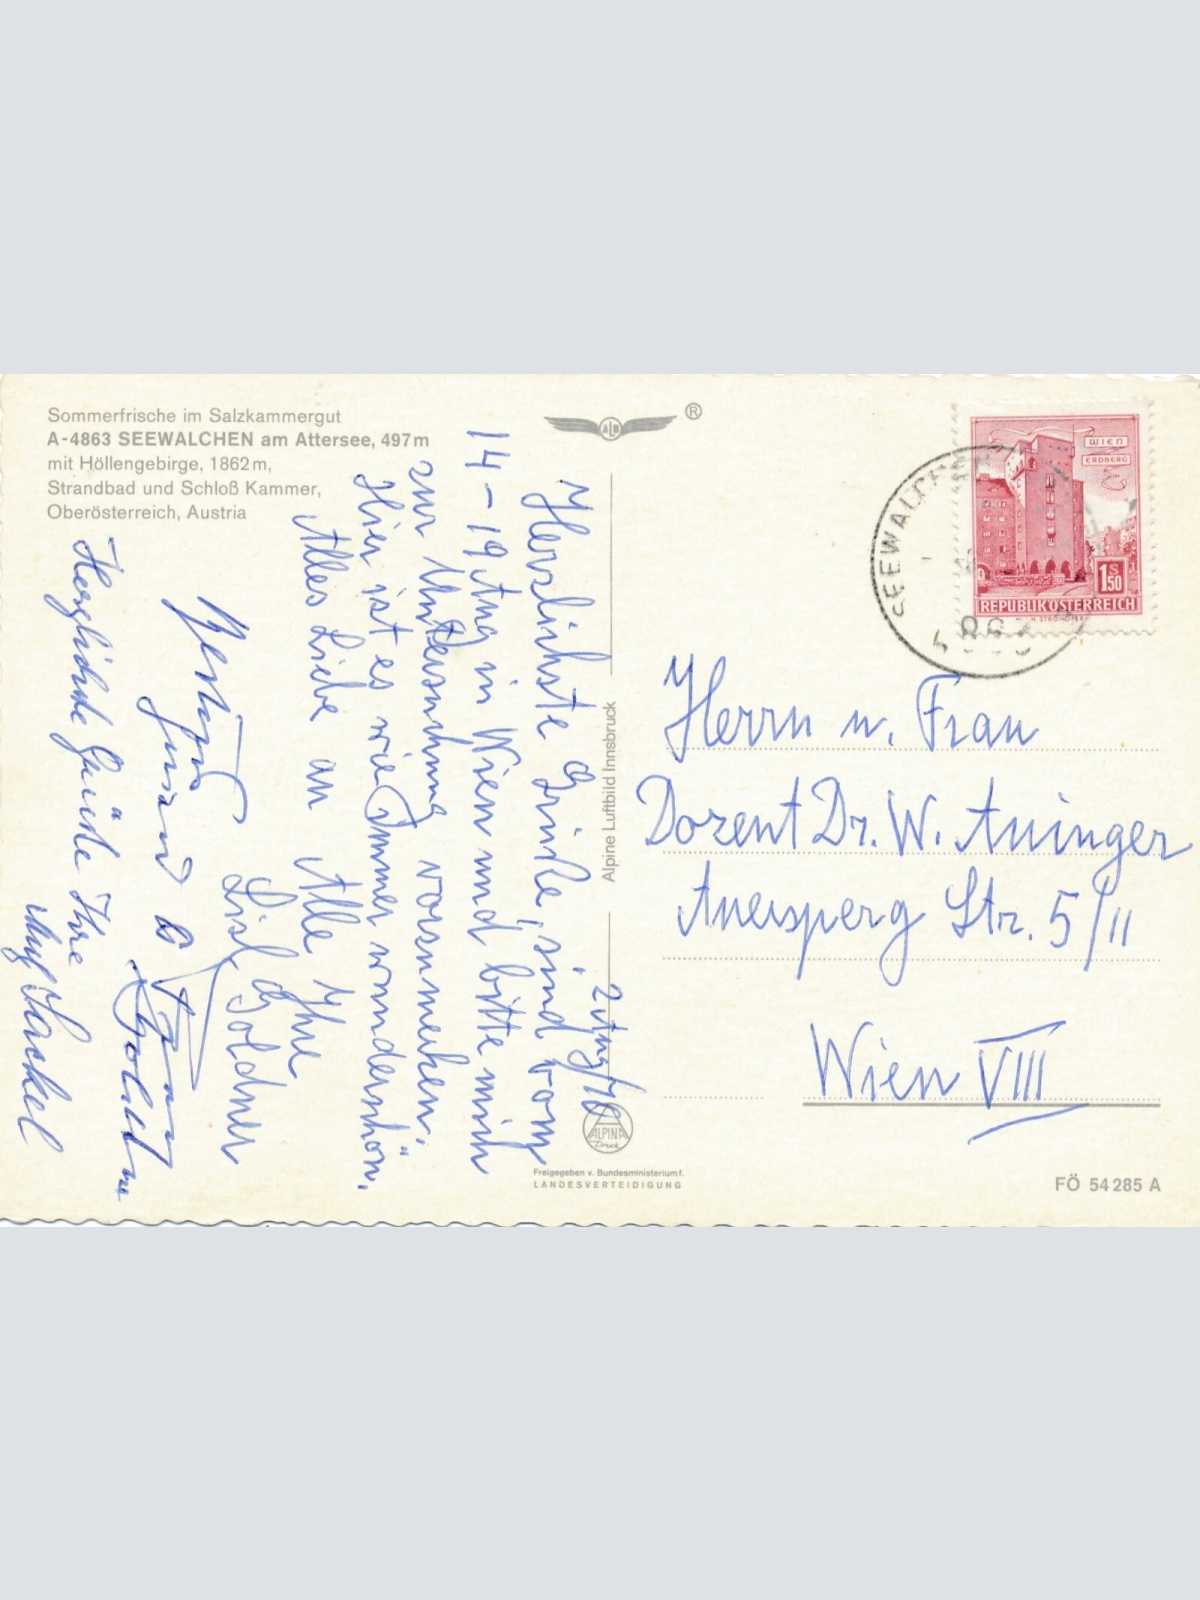 Sommerfrische im Salzkammergut
A-4863 SEEWALCHEN am Attersee, 497m
mit Höllengebirge, 1862m,
Strandbad und Schloß Kammer,
Oberösterreich, Austria
ALB
®
2 Aug/
Herzlichste Grüße, sind vom
14-19 Aug in Wien und bitte mich
zur Untersuchung vorzumerken.
Hier ist es wie Immer wunderschön.
Alles Liebe an Alle Ihre
Lisl Goldner
Herzliche Grüße Ihre
Alpine Luftbild Innsbruck
ALPINA
Druck
Freigegeben v. Bundesministerium f.
LANDESVERTEIDIGUNG
WIEN
ERDBERG
1 S 50
REPUBLIK ÖSTERREICH
H. STROHOFER
SEEWALCHEN
4863
Herrn u. Frau
Dozent Dr. W. Auinger
Auersperg Str. 5/II
Wien VIII
FÖ 54 285 A